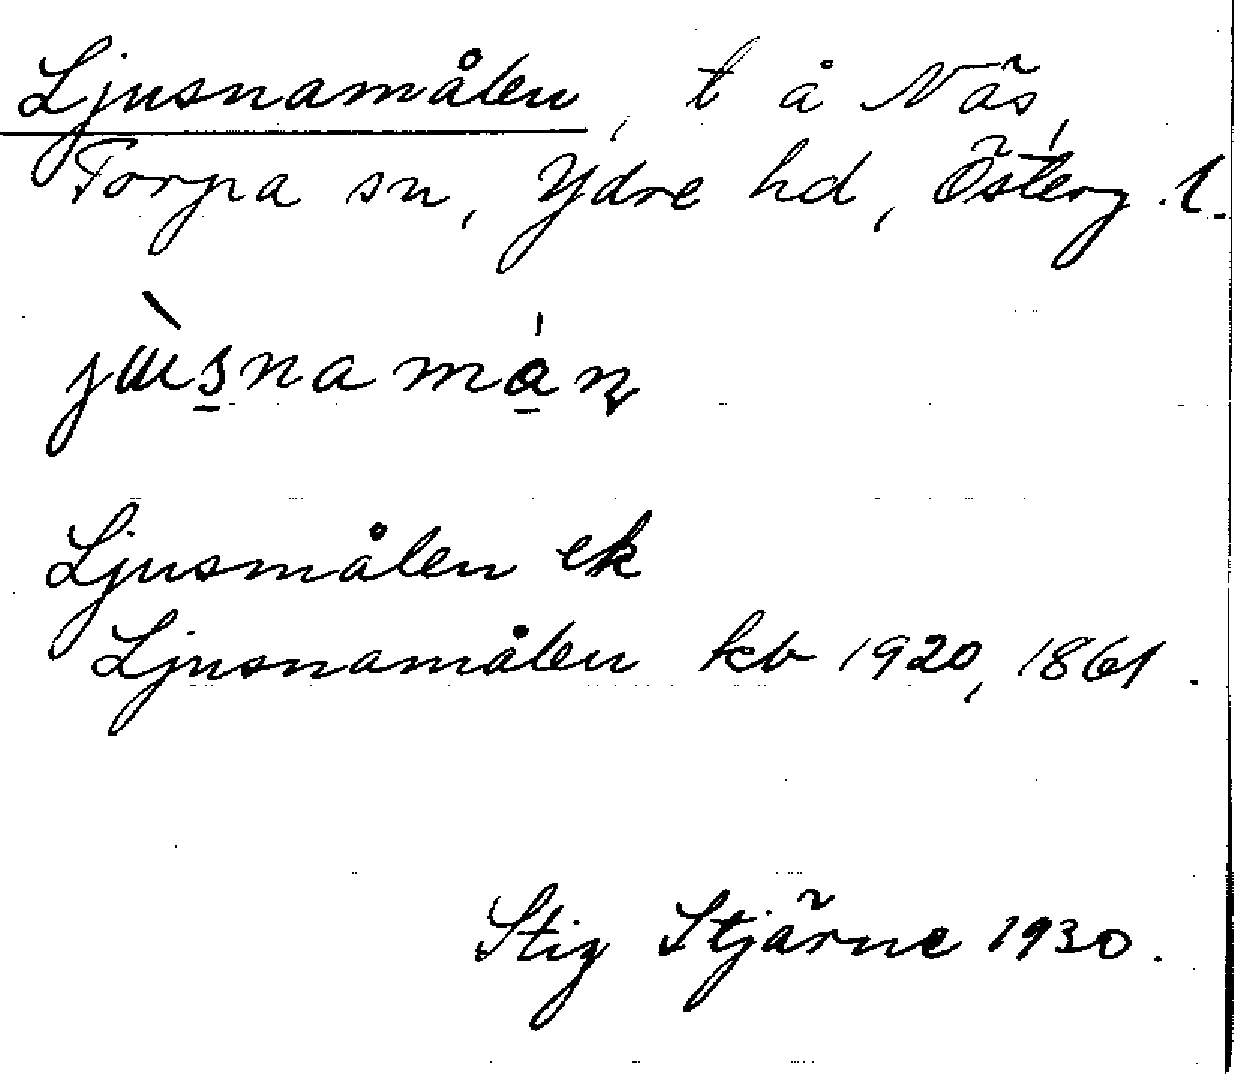 Ljusnamålen, t å Näs,
Torpa sn, Ydre hd, Österg. l.
Ljusmålen ek
Ljusnamålen kb 1920, 1861.
Stig Stjärne 1930.